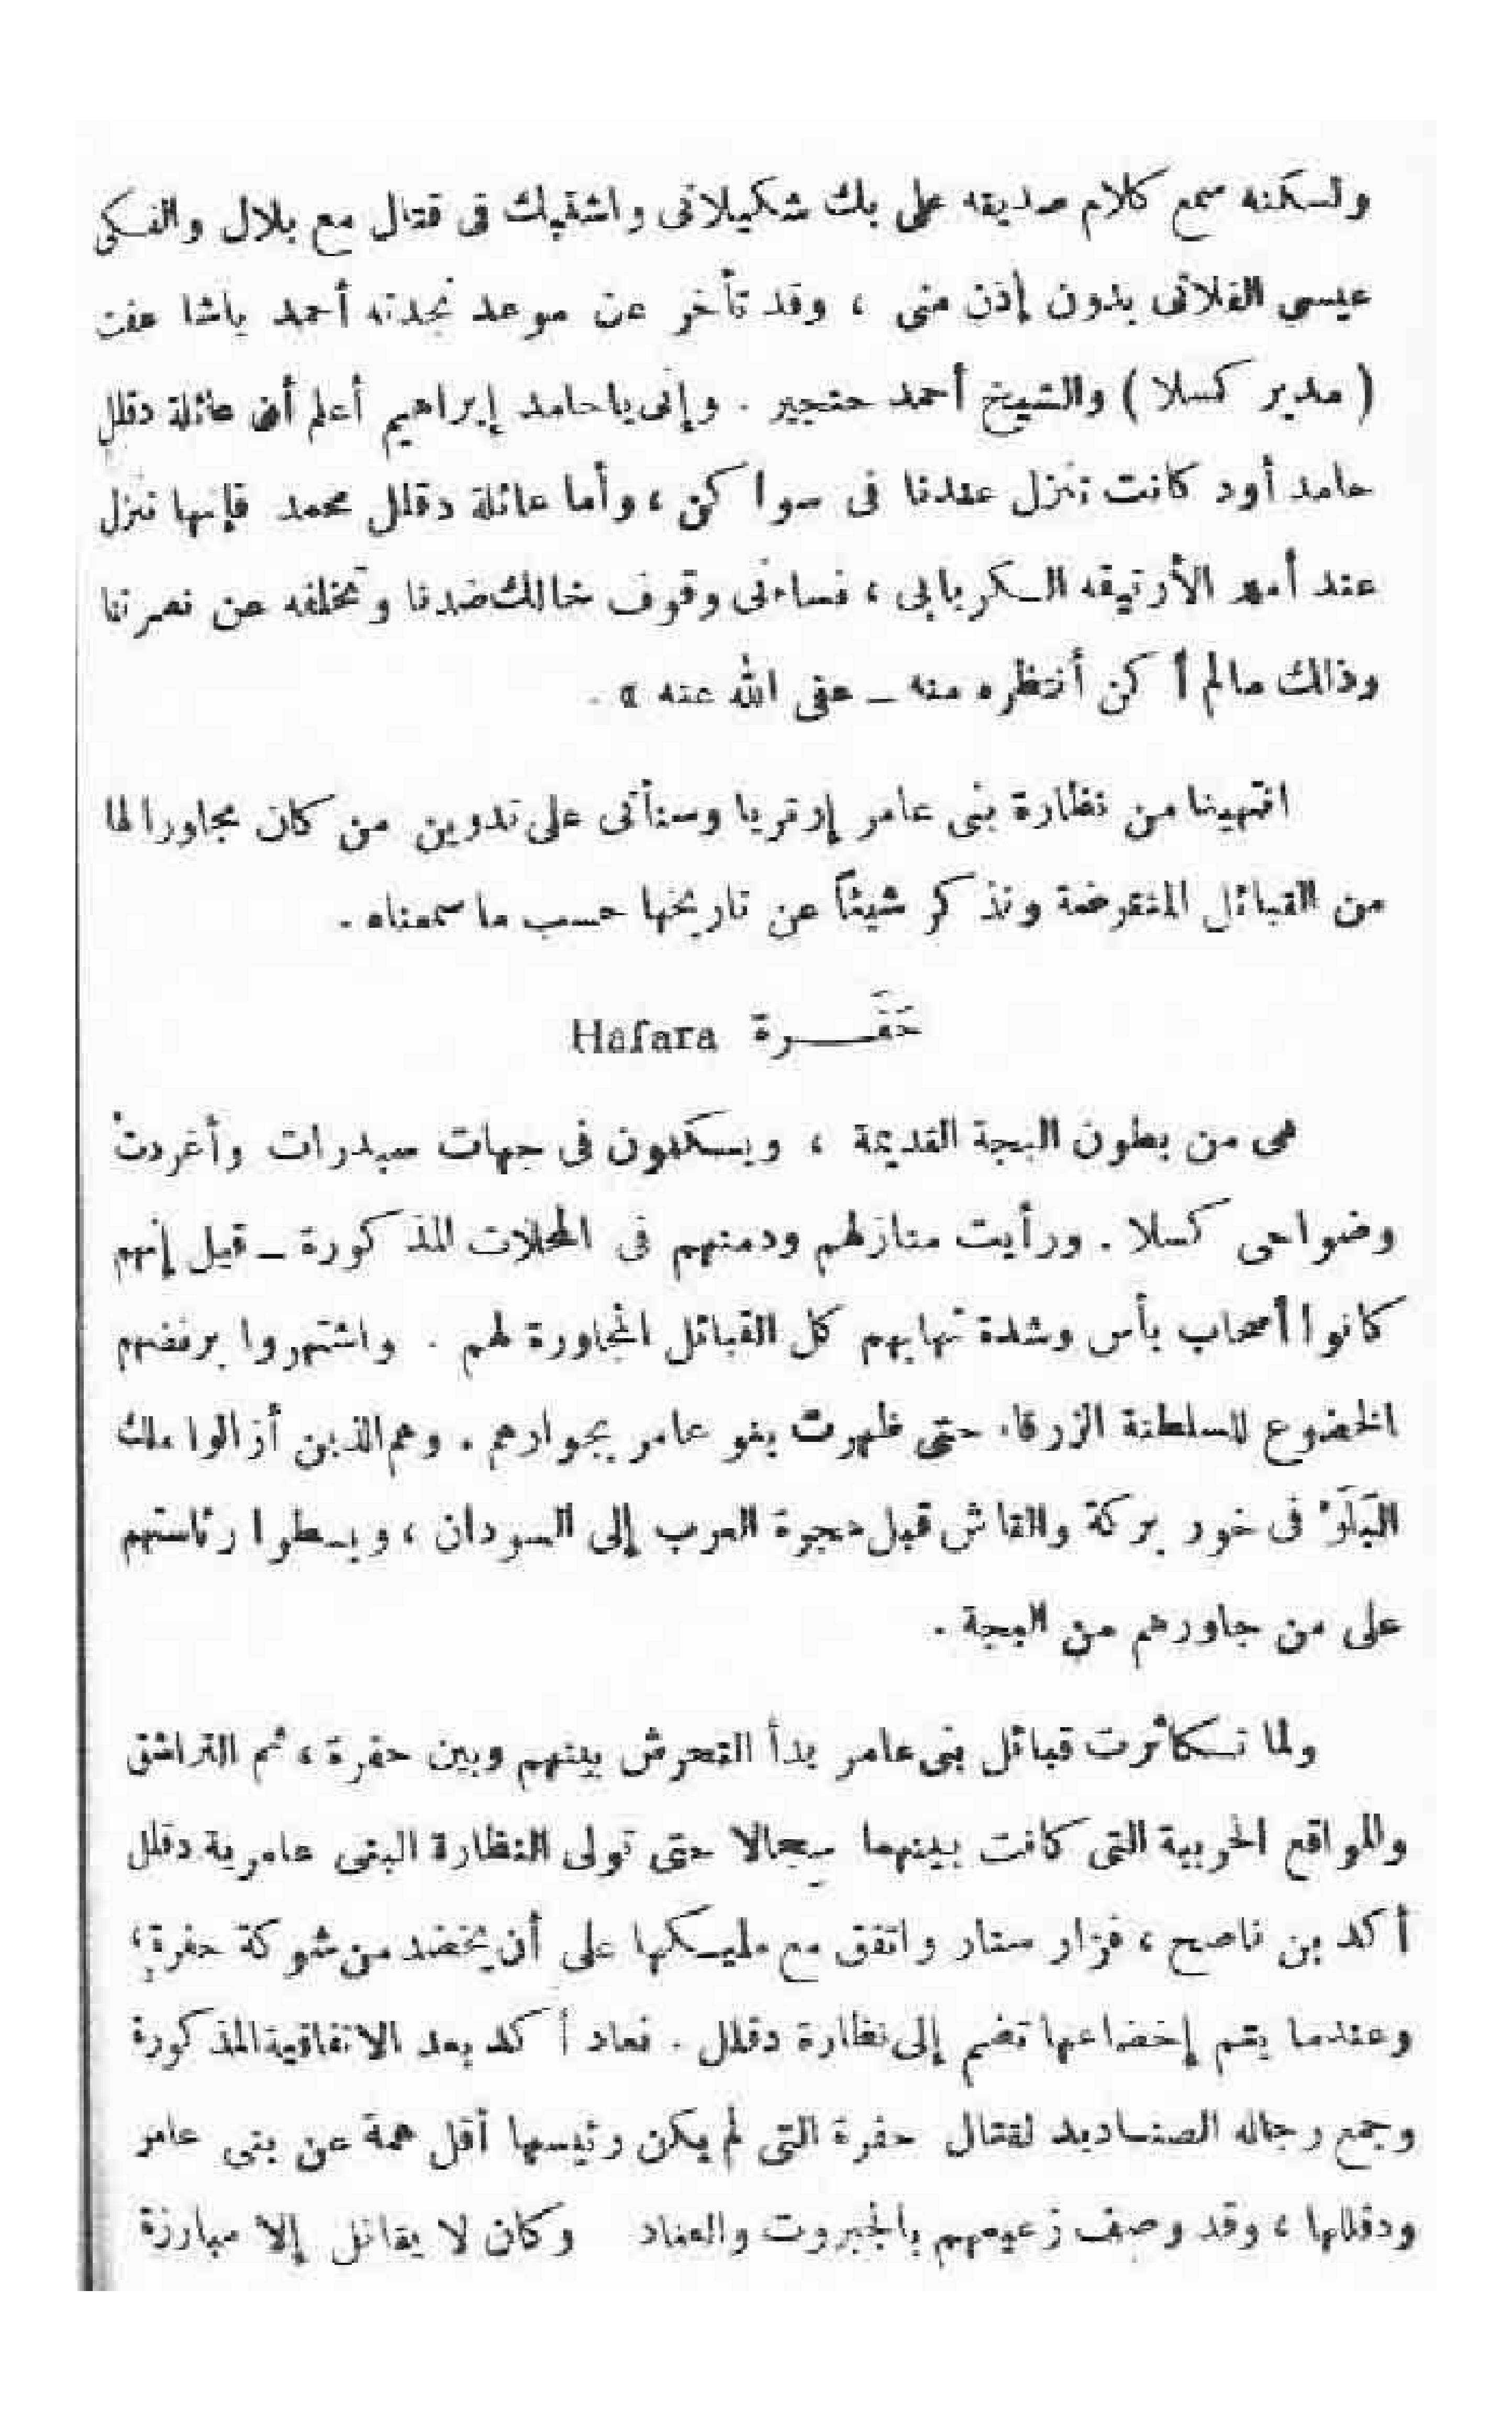 ولكنه سمع كلام صديقه على بك شكيلاتى واشتبك فى قتال مع بلال والفكى
عيسى الفلاتى بدون إذن منى ، وقد تأخر عن موعد نجدته أحمد باشا عفت
( مدير كسلا ) والشيخ أحمد حتجير . وإنى ياحامد إبراهيم أعلم أن عائلة دقلل
حامد أود كانت تنزل عندنا فى سواكن ، وأما عائلة دقلل محمد فإنها تنزل
عند أمهد الأرتيقه الكربابى ، فساءنى وقوف خالك ضدنا وتخلفه عن نصرتنا
وذلك مالم أكن أنتظره منه ــ عفى الله عنه » .
انتهينا من نظارة بنى عامر إرتريا وسنأتى على تدوين من كان مجاورا لها
من القبائل المنقرضة ونذكر شيئاً عن تاريخها حسب ما سمعناه .
حَفَــرة Hafara
هى من بطون البجة القديمة ، ويسكنون فى جهات سبدرات وأغردتْ
وضواحى كسلا . ورأيت منازلهم ودمنهم فى المحلات المذكورة ــ قيل إنهم
كانوا أصحاب بأس وشدة تهابهم كل القبائل المجاورة لهم . واشتهروا برفضهم
الخضوع للسلطنة الزرقاء حتى ظهرت بنو عامر بجوارهم . وهم الذين أزالوا ملك
البَلَوْ فى خور بركة والقاش قبل هجرة العرب إلى السودان ، وبسطوا رئاستهم
على من جاورهم من البجة .
ولما تكاثرت قبائل بنى عامر بدأ التحرش بينهم وبين حفرة ، ثم التراشق
والمواقع الحربية التى كانت بينهما سِجالا حتى تولى النظارة البنى عامرية دقلل
أكد بن ناصح ، فزار سنار واتفق مع مليكها على أن يخضد من شوكة حفرةٍ ،
وعندما يتم إخضاعها تضم إلى نظارة دقلل . فعاد أكد بعد الاتفاقية المذكورة
وجمع رجاله الصناديد لقتال حفرة التى لم يكن رئيسها أقل همة عن بنى عامر
ودقللها ، وقد وصف زعيمهم بالجبروت والعناد وكان لا يقاتل إلا مبارزة